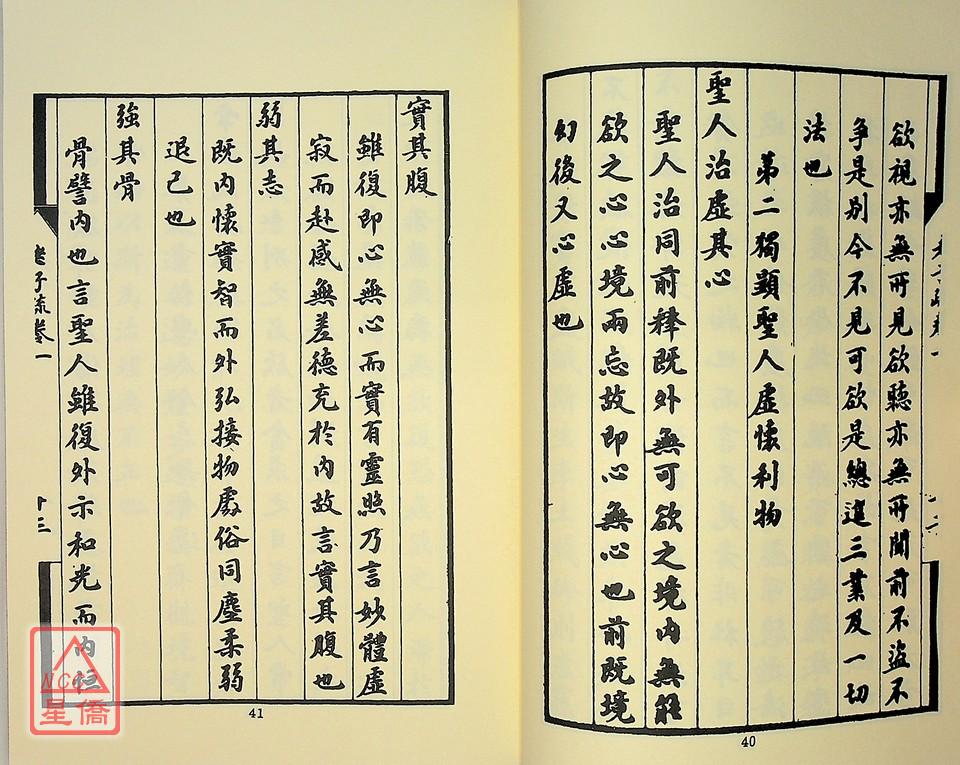 欲視亦無所見欲聽亦無所聞前不盜不
爭是別今不見可欲是總遣三業及一切
法也
第二獨顯聖人虛懷利物
聖人治虛其心
聖人治同前釋既外無可欲之境內無能
欲之心心境兩忘故即心無心也前既境
幻後又心虛也
40
實其腹
雖復即心無心而實有靈照乃言妙體虛
寂而赴感無差德充於內故言實其腹也
弱其志
既內懷實智而外弘接物處俗同塵柔弱
退己也
強其骨
骨譬內也言聖人雖復外示和光而內恒
老子疏卷一
十三
41
NCC
星僑